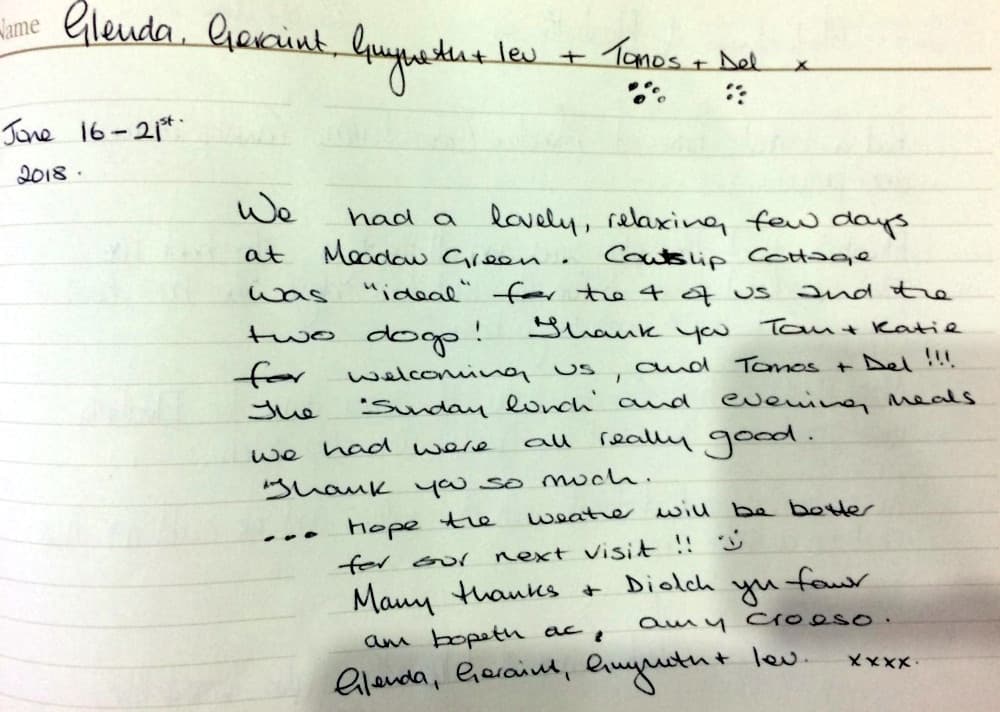 Name Glenda, Geraint, Gwyneth + Ieu + Tomos + Del x
June 16 – 21st.
2018.
We had a lovely, relaxing few days
at Meadow Green. Cowslip Cottage
was "ideal" for the 4 of us and the
two dogs! Thank you Tom + Katie
for welcoming us, and Tomos + Del !!!
The 'Sunday lunch' and evening meals
we had were all really good.
Thank you so much.
... Hope the weather will be better
for our next visit !! :)
Many thanks + Diolch yn fawr
am bopeth ac, am y croeso.
Glenda, Geraint, Gwyneth + Ieu. xxxx.